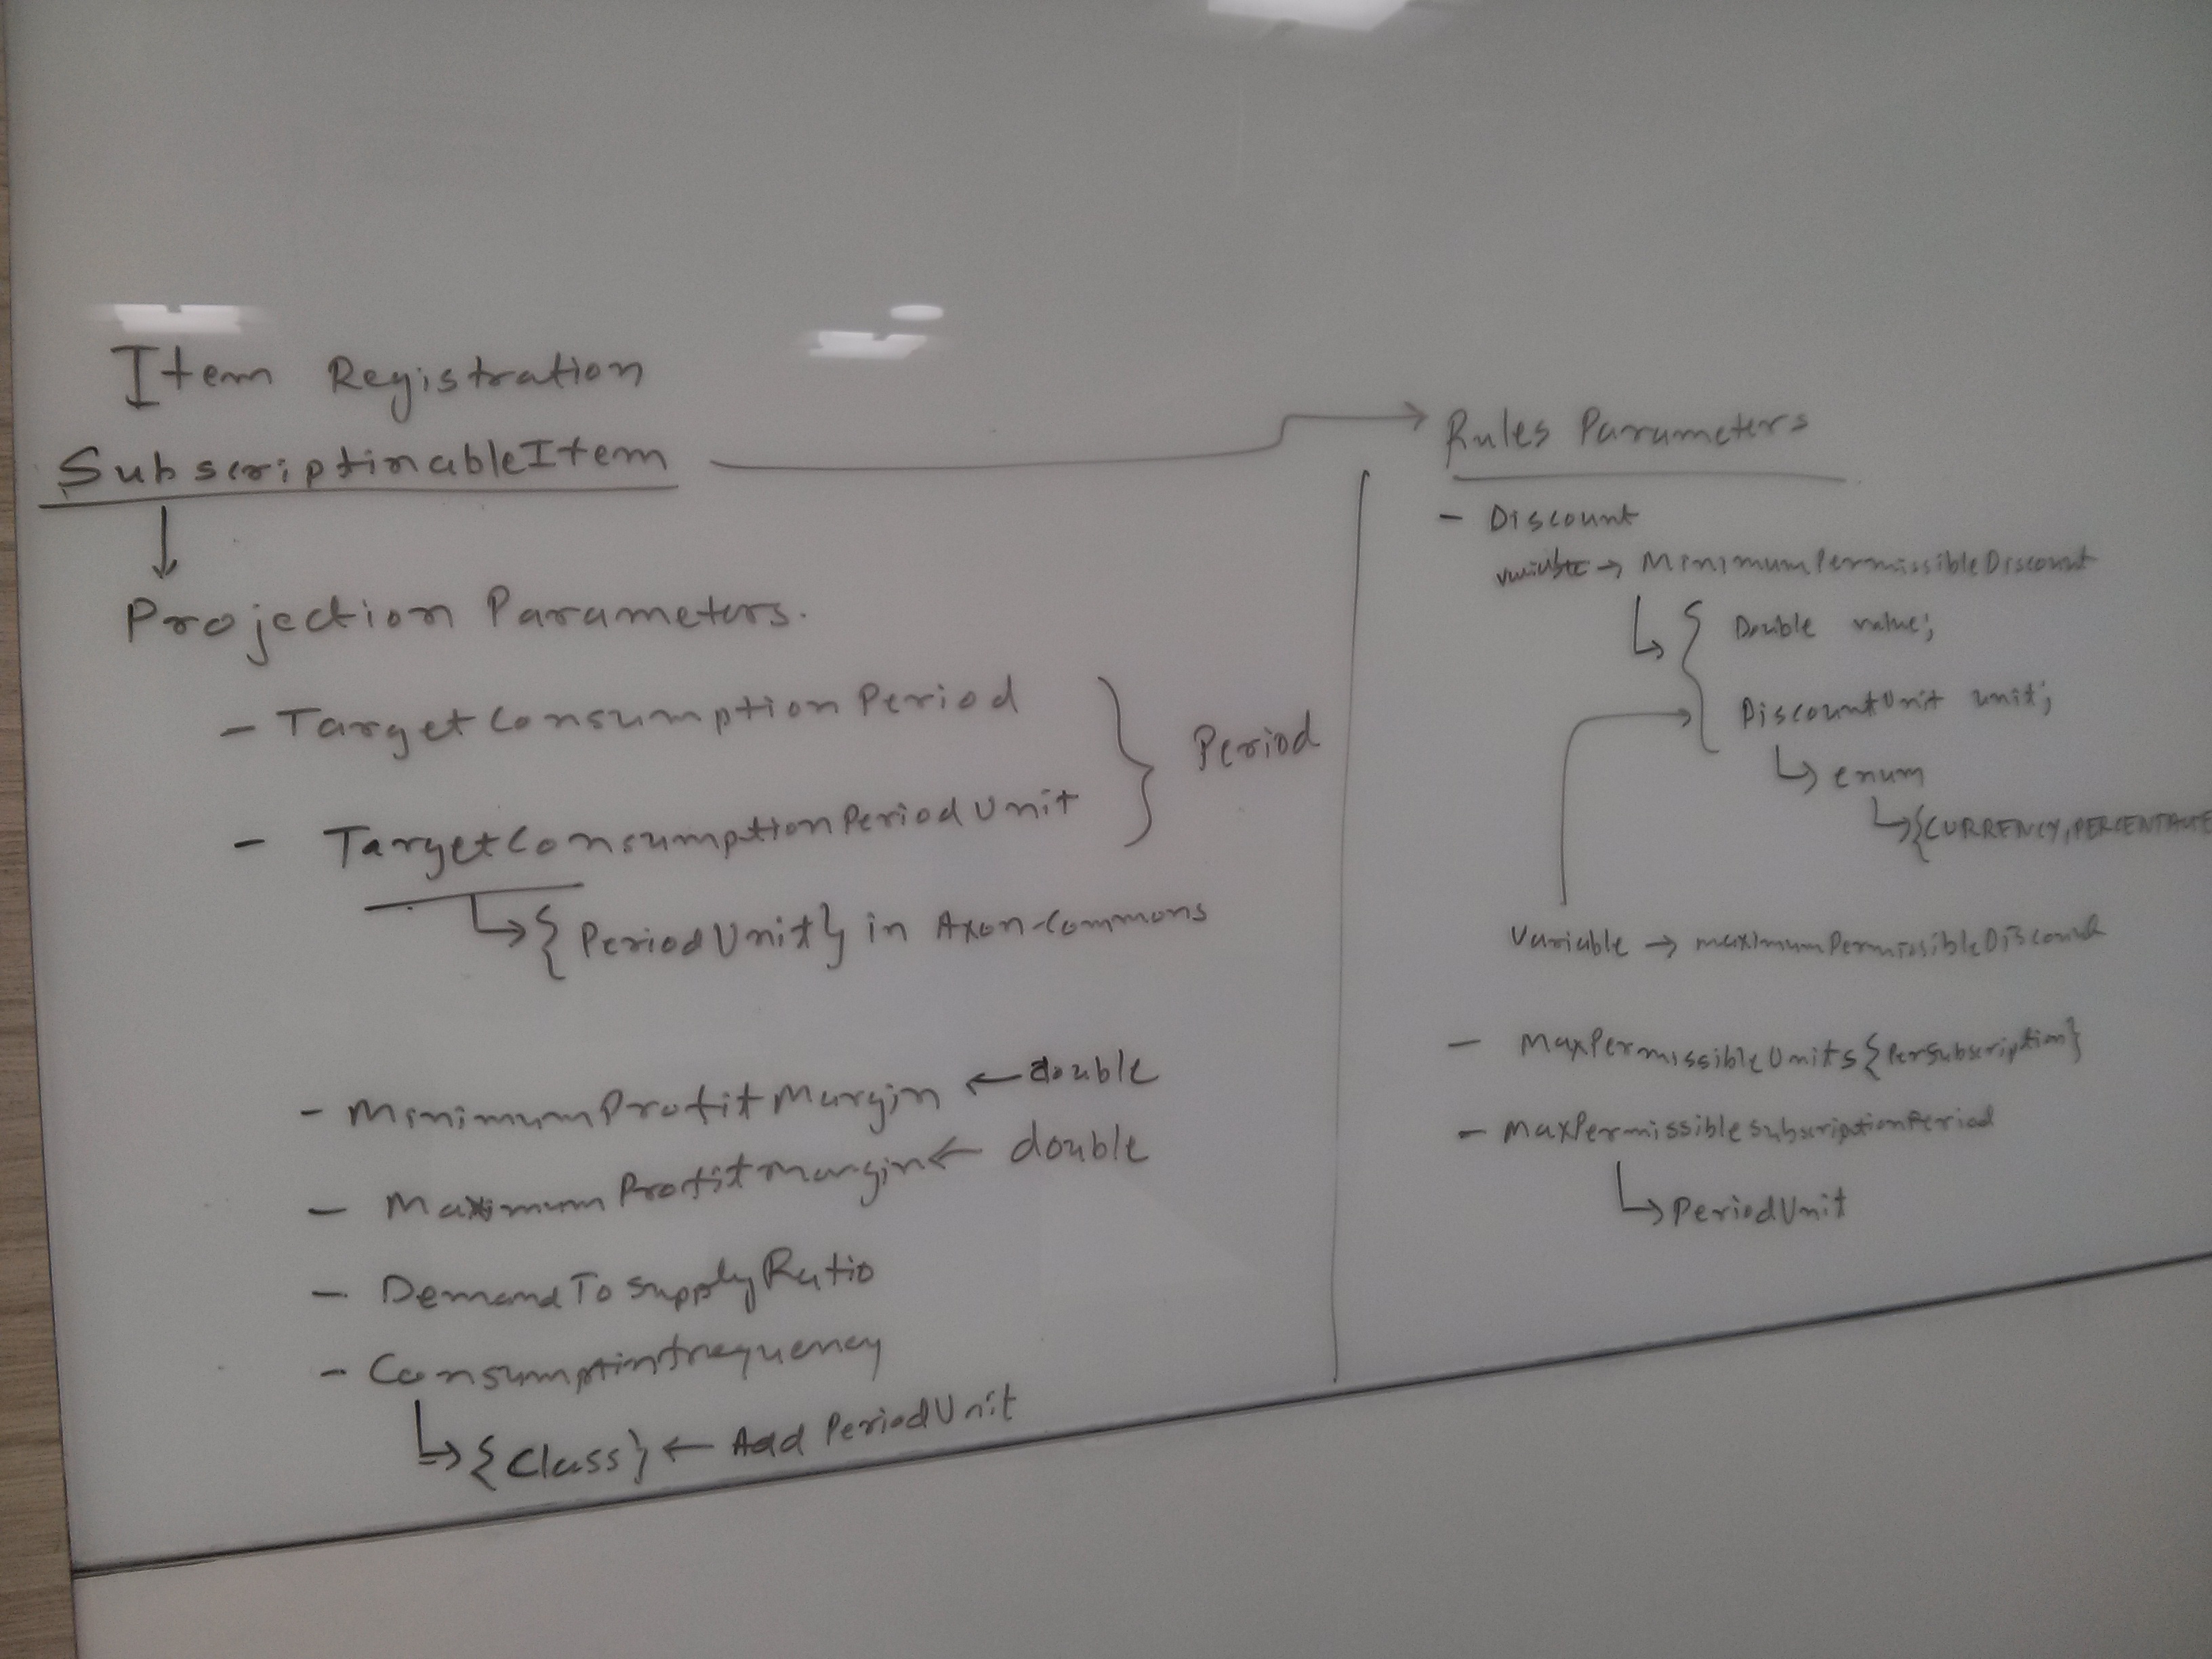 Item Registration
SubscriptinableItem
Projection Parameters.
- TargetConsumptionPeriod
- TargetConsumptionPeriodUnit
} Period
↳ {PeriodUnit} in Axon-Commons
- MinimumProfitMargin ← double
- MaximumProfitMargin ← double
- DemandToSupplyRatio
- Consumptinfrequency
↳ {Class} ← Add PeriodUnit
Rules Parameters
- Discount
variable → MinimumPermissibleDiscount
↳ { Double value;
DiscountUnit unit;
↳ enum
↳ {CURRENCY, PERCENTAGE
Variable → maximumPermissibleDiscount
- MaxPermissibleUnits {PerSubscription}
- MaxPermissibleSubscriptionPeriod
↳ PeriodUnit